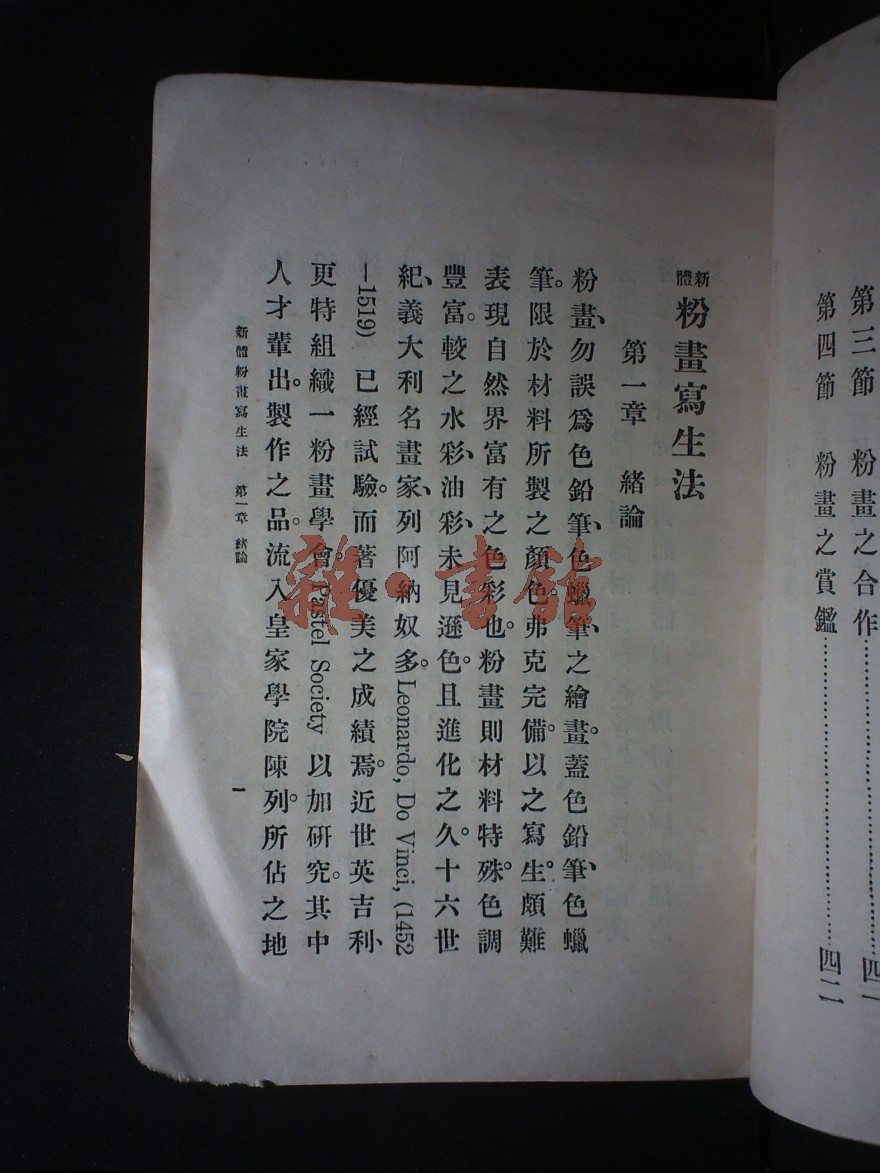 第三節　粉畫之合作……………………四一
第四節　粉畫之賞鑑……………………四二
新體粉畫寫生法
第一章　緒論
粉畫、勿誤爲色鉛筆、色蠟筆、之繪畫。蓋色鉛筆、色蠟
筆。限於材料所製之顏色。弗克完備。以之寫生。頗難
表現自然界富有之色彩也。粉畫則材料特殊。色調
豐富。較之水彩、油彩、未見遜色。且進化之久。十六世
紀、義大利名畫家、列阿納奴多。Leonardo, Do Vinci, (1452
—1519) 已經試驗。而著優美之成績焉。近世英吉利、
更特組織一粉畫學會。Pastel Society 以加研究。其中
人才輩出。製作之品。流入皇家學院陳列。所佔之地
新體粉畫寫生法　第一章　緒論
一
雜·書館